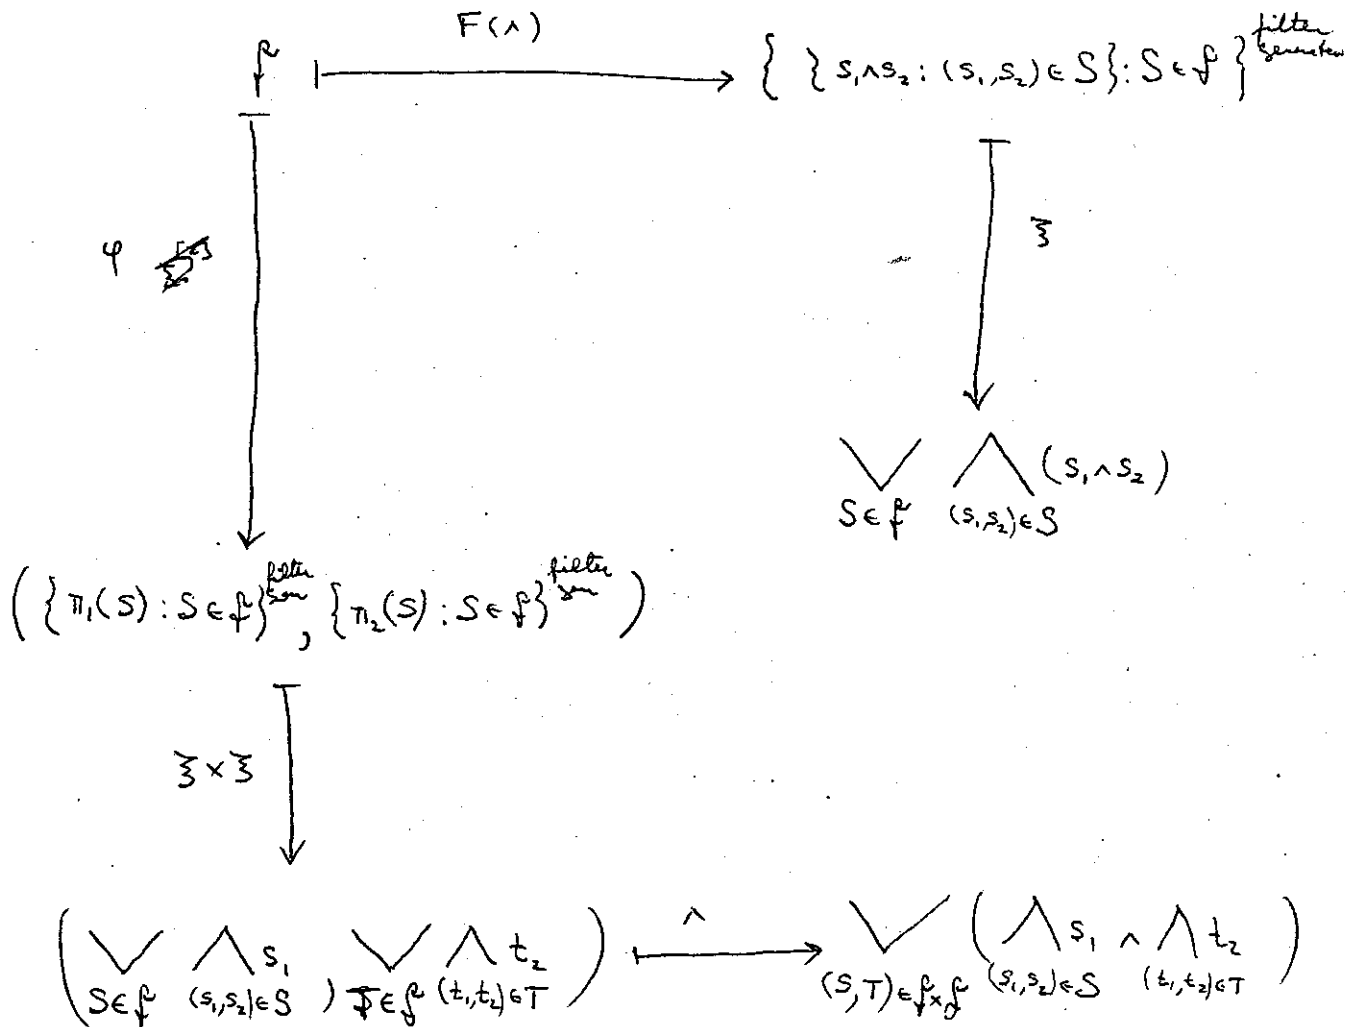 F(∧)
f ⟼ { { s₁∧s₂ : (s₁,s₂) ∈ S } : S ∈ f } filter
φ
ξ
⋁ S∈f ⋀ (s₁,s₂)∈S (s₁∧s₂)
( { π₁(S) : S ∈ f } filter gen , { π₂(S) : S ∈ f } filter gen )
ξ×ξ
( ⋁ S∈f ⋀ (s₁,s₂)∈S s₁ , ⋁ T∈f ⋀ (t₁,t₂)∈T t₂ ) ⟼ ∧ ⋁ (S,T)∈f×f ( ⋀ (s₁,s₂)∈S s₁ ∧ ⋀ (t₁,t₂)∈T t₂ )